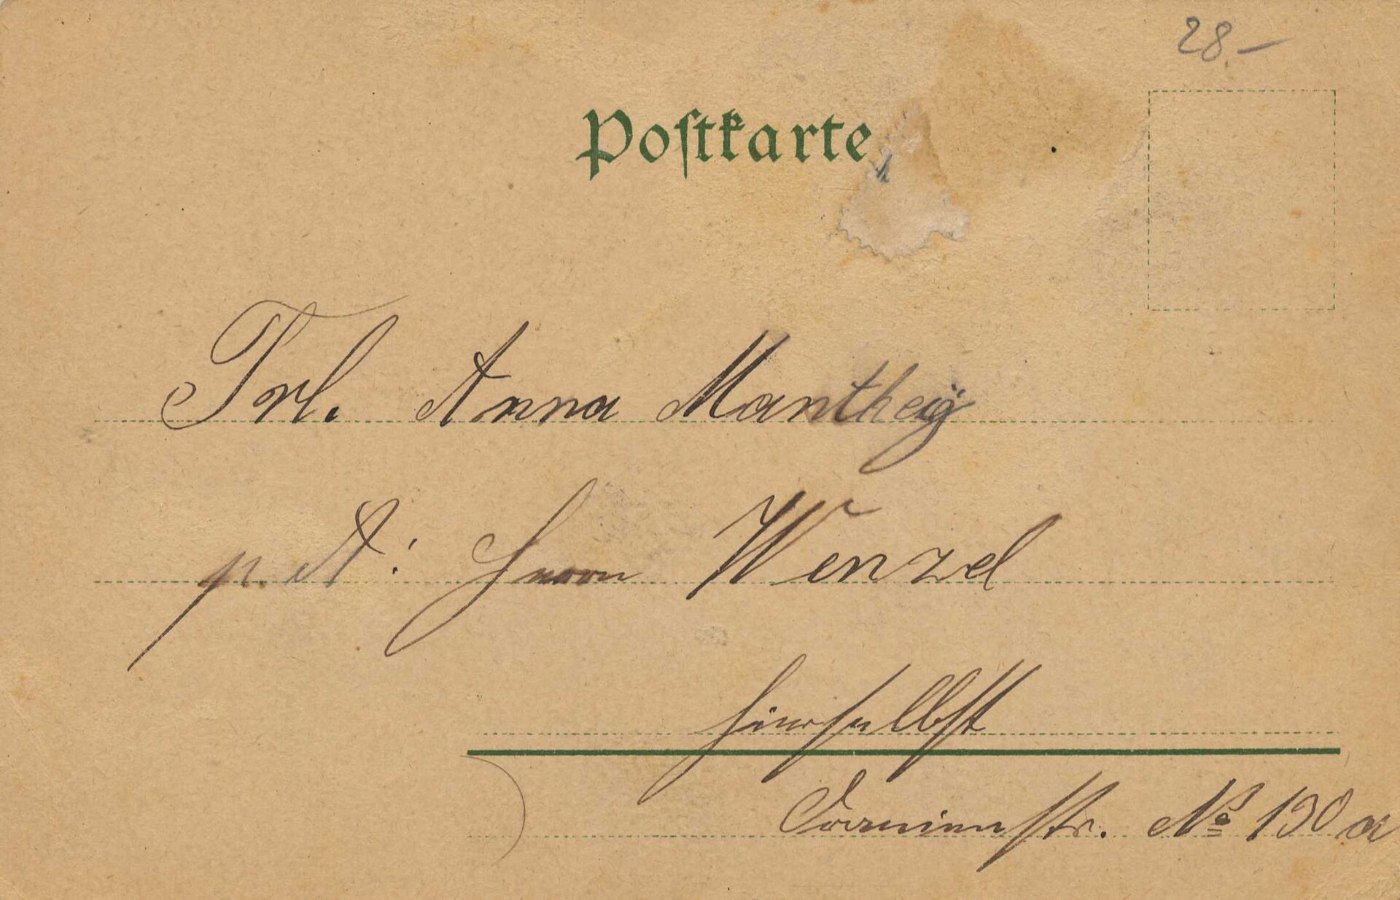 28.-
Postkarte
Frl. Anna Manthey
p. A: Herrn Wenzel
hierselbst
Oranienstr. No 190 a